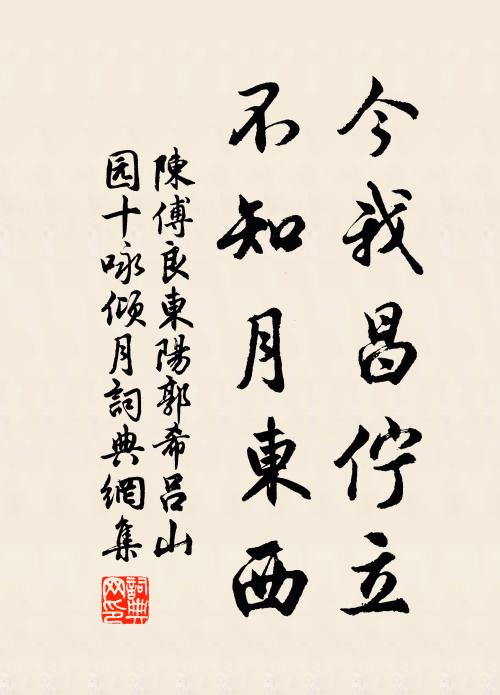 今我昌佇立
不知月東西
陳傅良東陽郭希呂山
园十咏倾月詞典網集
詞典網印